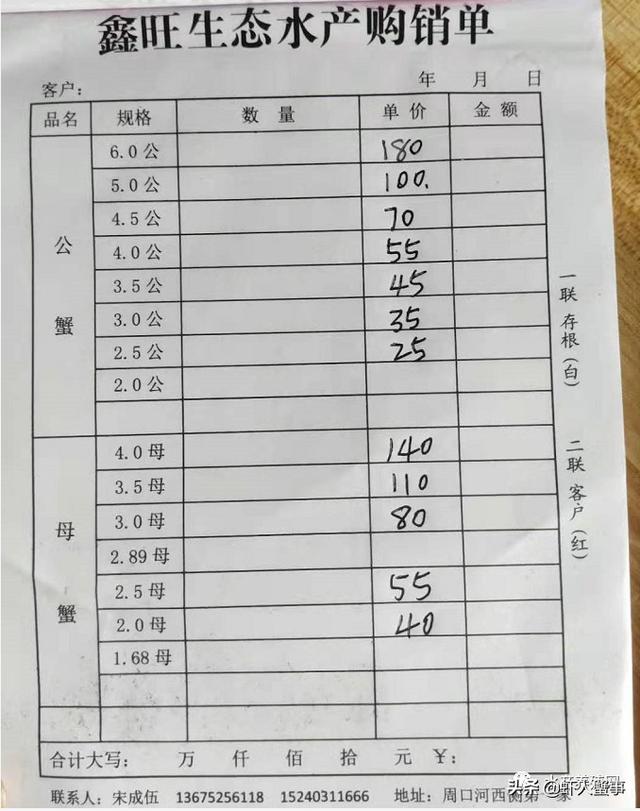 鑫旺生态水产购销单
客户： 年 月 日
品名 规格 数量 单价 金额
公蟹
6.0公 180
5.0公 100.
4.5公 70
4.0公 55
3.5公 45
3.0公 35
2.5公 25
2.0公
母蟹
4.0母 140
3.5母 110
3.0母 80
2.89母
2.5母 55
2.0母 40
1.68母
合计大写： 万 仟 佰 拾 元 ¥：
联系人：宋成伍 13675256118 15240311666 地址：周口河西 第 家
一联存根(白)
二联客户(红)
头条@虾人蟹事